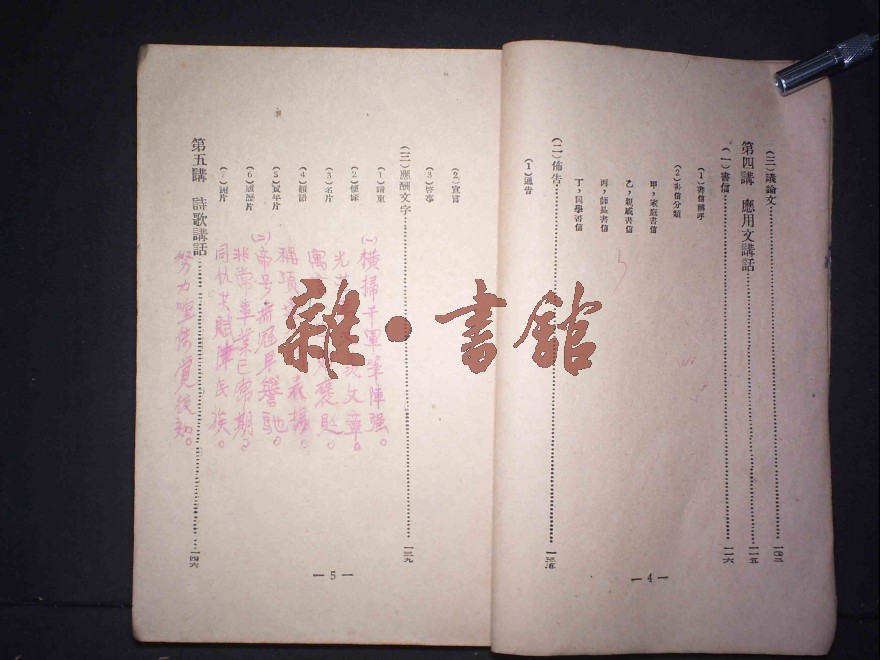 (三)議論文……一〇三
第四講 應用文講話……一一五
(一)書信……一一六
(1)書信稱呼
(2)書信分類
甲，家庭書信
乙，親戚書信
丙，師長書信
丁，同學書信
(二)佈告……一三五
(1)通告
—4—
(2)宣言
(3)啓事
(三)應酬文字……一三九
(1)請柬
(2)便條
(3)名片
(4)題語
(5)賀年片
(6)履歷片
(7)謝片
第五講 詩歌講話……一四六
—5—
(一)橫掃千軍筆陣强。
光 文章。
寓 褒貶。
稱頌 表揚。
(二)帝号無冠早譽馳。
非常革業已常期。
同仇共賦陳民族。
努力宣傳覺後知。
雜·書舘